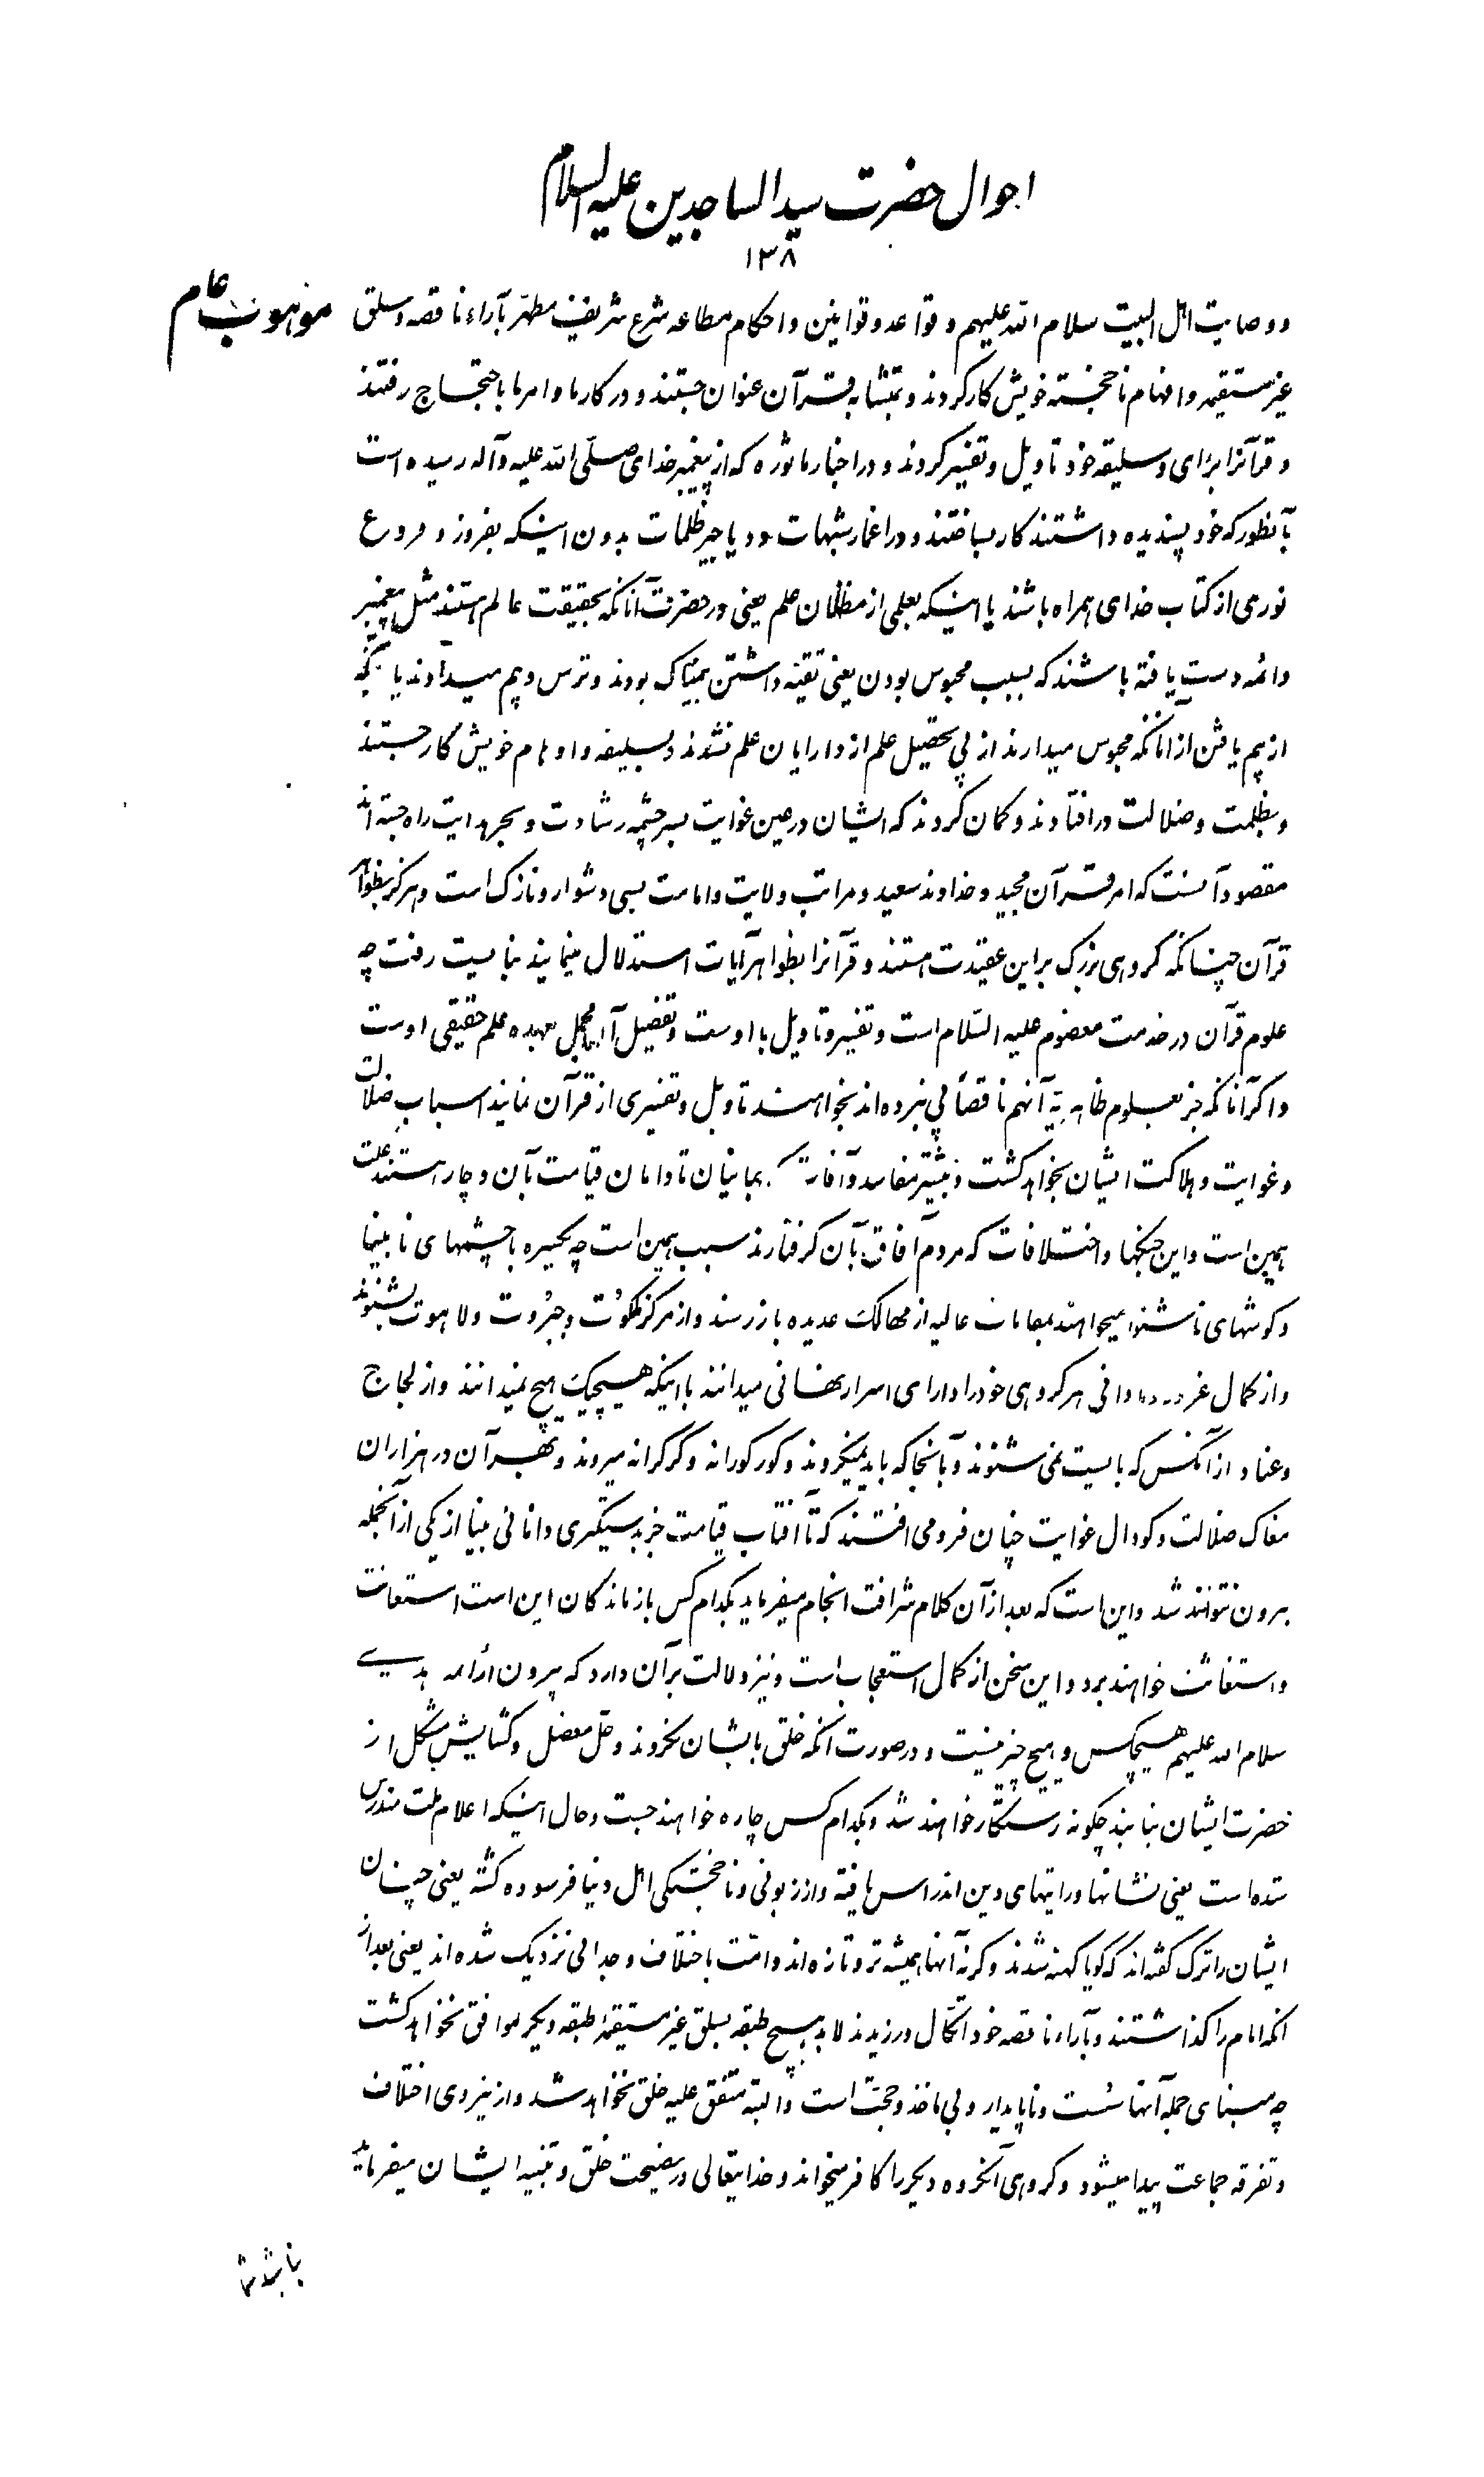 احوال حضرت سید الساجدین علیه السلام
۱۳۸
موهوب عام
و وصایت اهل البیت سلام الله علیهم و قواعد و قوانین و احکام مطاعه شرع شریف مطهّر بآراء ناقصه و سلق
غیر مستقیمه و افهام ناپخته خویش کار کردند و بمتشابه قرآن عنوان جستند و در کارها و امرها باحتجاج رفتند
و قرآنرا برای و سلیقه خود تاویل و تفسیر کردند و در اخبار ماثوره که از پیغمبر خدای صلّی الله علیه و آله رسیده است
بآنطور که خود پسندیده داشتند کار بساختند و در اغمار شبهات و دیاجیر ظلمات بدون اینکه بفروز و فروغ
نوری از کتاب خدای همراه باشند یا اینکه بعلمی از مظانّ علم یعنی در حضرت آنانکه بحقیقت عالم هستند مثل پیغمبر
و ائمه دست یافته باشند که بسبب محبوس بودن یعنی تقیّه داشتن بیمناک بودند و ترس و بیم میدادند یا
از بیم یافتن از آنانکه محبوس میدارند از پی تحصیل علم از دارایان علم نشوند و بسلیقه و اوهام خویش کار جستند
و بظلمت و ضلالت در افتادند و گمان کردند که ایشان در عین غوایت بسرچشمه رشادت و بحر هدایت راه جسته اند
مقصود آنست که امر قرآن مجید و خداوند سعید و مراتب ولایت و امامت بسی دشوار و نازک است و هرگز بظواهر
قرآن چنانکه گروهی بزرگ بر این عقیدت هستند و قرآنرا بظواهر آیات استدلال مینمایند نبایست رفت چه
علوم قرآن در خدمت معصوم علیه السّلام است و تفسیر و تاویل با اوست و تفصیل آن مجمل بعهده علم حقیقی اوست
و اگر آنانکه جز بعلوم ظاهریّه آنهم ناقصاً پی نبرده اند بخواهند تاویل و تفسیری از قرآن نمایند اسباب ضلالت
و غوایت و هلاکت ایشان بخواهد گشت و بیشتر مفاسد و آفات که جهانیان تا دامان قیامت بآن دچار هستند علت
همین است و این جنگها و اختلافات که مردم آفاق بآن گرفتارند سبب همین است چه یکسره با چشمهای نابینا
و گوشهای ناشنوا میخواهند بمقامات عالیه از مهالک عدیده باز رسند و از مرکز ملکوت و جبروت و لاهوت بشنوند
و از کمال غرور و نادانی هر گروهی خود را دارای اسرار نهانی میدانند با اینکه هیچیک هیچ نمیدانند و از لجاج
و عناد از آنکس که بایست نمی شنوند و بآنجا که باید نمیگروند و کورکورانه و کرکرانه میروند و بهر آن در هزاران
مغاک ضلالت و گودال غوایت چنان فرو می افتند که تا آفتاب قیامت جز بدستگیری دانائی بینا از یکی از آنجمله
بیرون نتوانند شد و این است که بعد از آن کلام شرافت انجام میفرماید بکدام کس بازماندگان این است استعانت
و استغاثت خواهند برد و این سخن از کمال استعجاب است و نیز دلالت بر آن دارد که بیرون از ائمه هدی
سلام الله علیهم هیچکس و هیچ چیز نیست و در صورت آنکه خلق بایشان نگروند و حلّ معضل و گشایش مشکل از
حضرت ایشان نیابند چگونه رستگار خواهند شد و بکدام کس چاره خواهند جست و حال اینکه اعلام ملت مندرس
شده است یعنی نشانها و رایتهای دین اندراس یافته و از زبونی و ناپختگی اهل دنیا فرسوده گشته یعنی چنان
ایشان را ترک گفته اند که گویا کهنه شدند و گرنه آنها همیشه تر و تازه اند و امّت باختلاف و جدائی نزدیک شده اند یعنی بعد از
آنکه امام را گذاشتند و بآراء ناقصه خود اتّکال ورزیدند لابد هیچ طبقه بسلق غیر مستقیمه طبقه دیگر موافق نخواهد گشت
چه مبنای جمله آنها سُست و ناپایدار و بی ماخذ و حجّت است و البته متفق علیه خلق نخواهد شد و از نیروی اختلاف
و تفرقه جماعت پیدا میشود و گروهی آنگروه دیگر را کافر میخواند و خدایتعالی در نصیحت خلق و تنبیه ایشان میفرماید